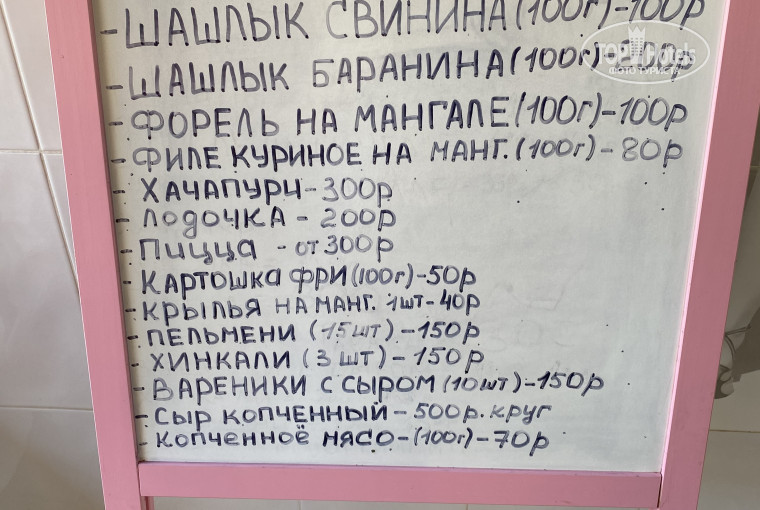 - ШАШЛЫК СВИНИНА (100г)-100р
- ШАШЛЫК БАРАНИНА (100г)-200р
TOP Hotels
ФОТО ТУРИСТА
- ФОРЕЛЬ НА МАНГАЛЕ (100г)-100р
- ФИЛЕ КУРИНОЕ НА МАНГ. (100г)-80р
- ХАЧАПУРИ-300р
- ЛОДОЧКА - 200р
- ПИЦЦА - от 300р
- КАРТОШКА ФРИ (100г)-50р
- КРЫЛЬЯ НА МАНГ. 1шт-40р
- ПЕЛЬМЕНИ (15шт)-150р
- ХИНКАЛИ (3шт)-150р
- ВАРЕНИКИ С СЫРОМ (10шт)-150р
- СЫР КОПЧЕННЫЙ-500р. круг
- КОПЧЕННОЁ МЯСО-(100г)-70р